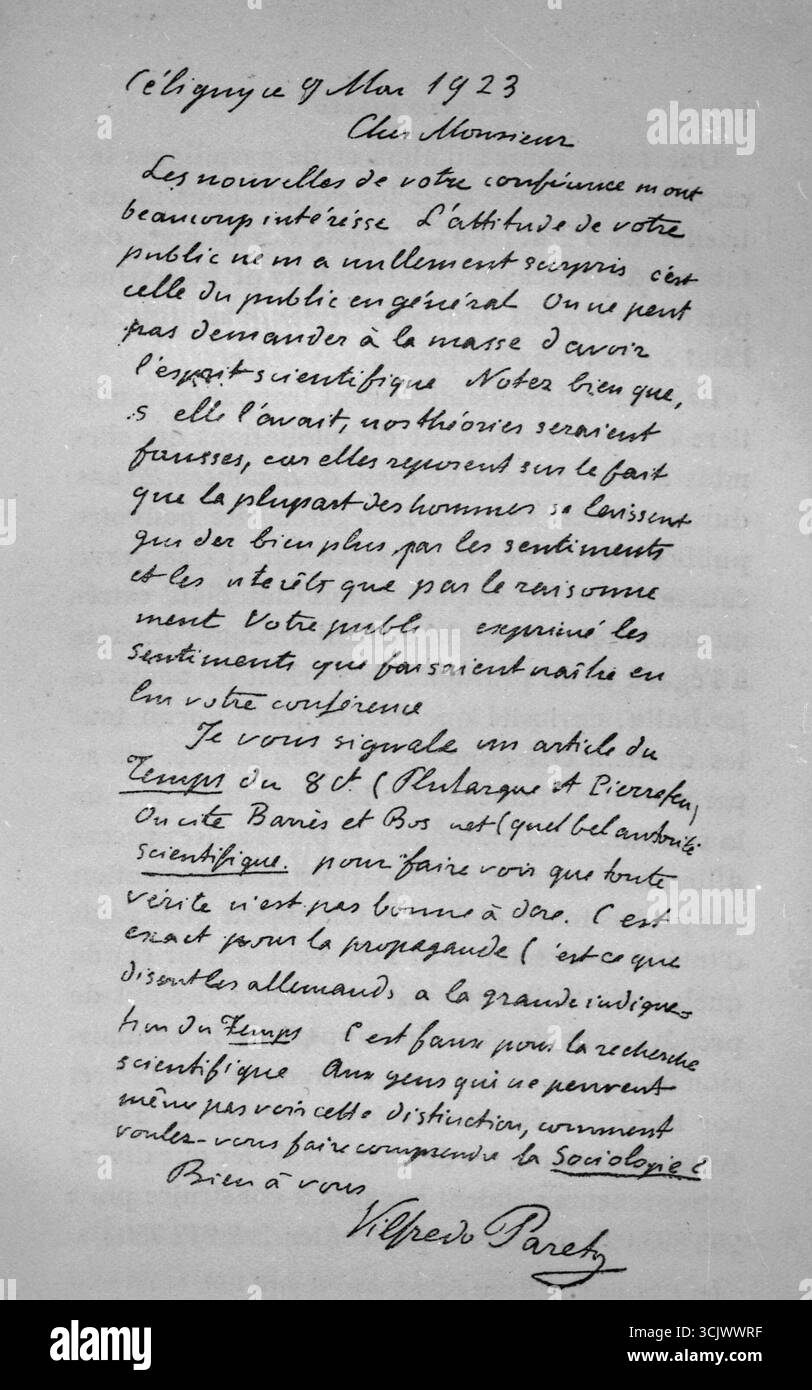 Céligny ce 9 Mar 1923
Cher Monsieur
Les nouvelles de votre conférence m ont
beaucoup intéresse L'attitude de votre
public ne m a nullement surpris c'est
celle du public en général On ne peut
pas demander à la masse d avoir
l'esprit scientifique Notez bien que,
s elle l'avait, nos théories seraient
fausses, car elles reposent sur le fait
que la plupart des hommes se laissent
gui der bien plus par les sentiments
et les nterêts que par le raisonne
ment Votre publi exprimé les
sentiments que faisaient naître en
lui votre conférence
Je vous signale un article du
Temps du 8 Ct. (Plutarque et Pierrefeu)
On cite Barrès et Bos uet (quel bel autorité
scientifique. pour faire voir que toute
vérité n'est pas bonne à dire. C est
exact pour la propagande (c'est ce que
disent les allemands a la grande indigna-
tion du Temps C est faux pour la recherche
scientifique Aux gens qui ne peuvent
même pas voir cette distinction, comment
voulez-vous faire comprendre la Sociologie ?
Bien à vous
Vilfredo Pareto
alamy
Image ID: 2CJWWRF
www.alamy.com